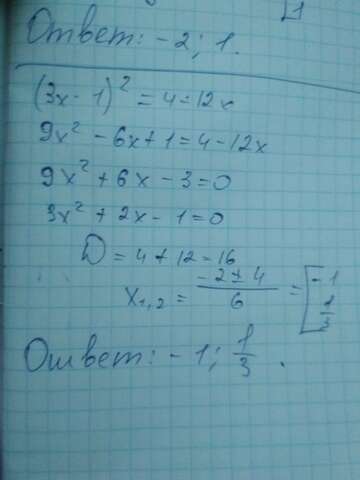 Ответ: -2; 1.
(3x - 1)² = 4 - 12x
9x² - 6x + 1 = 4 - 12x
9x² + 6x - 3 = 0
3x² + 2x - 1 = 0
D = 4 + 12 = 16
x₁,₂ = (-2 ± 4)/6 = [-1; 1/3
Ответ: -1; 1/3.